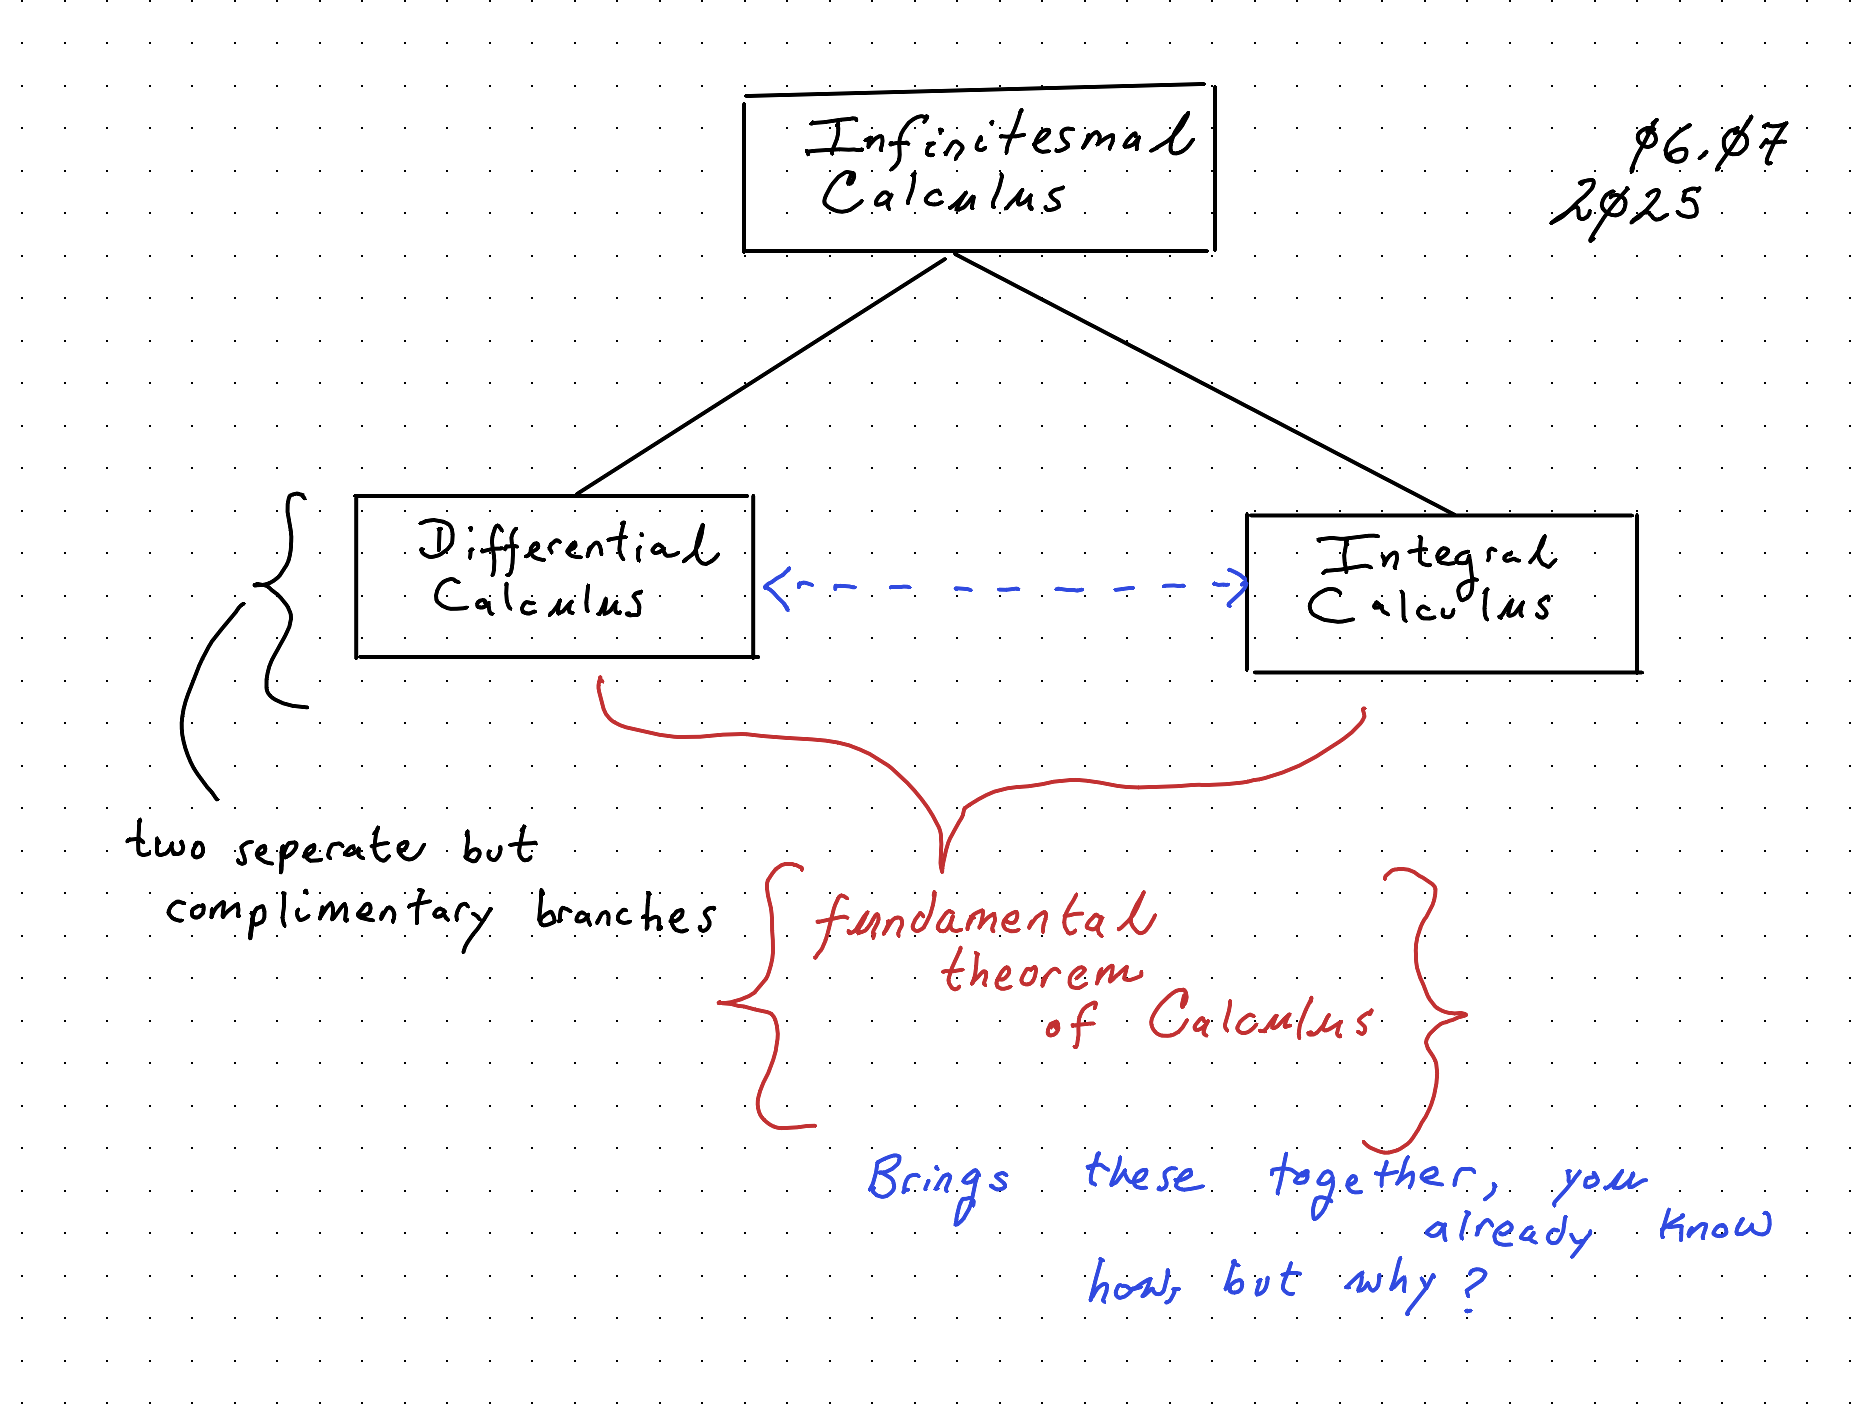 Infinitesmal
Calculus
06.07
2025
Differential
Calculus
Integral
Calculus
two seperate but
complimentary branches
fundamental
theorem
of Calculus
Brings these together, you
already know
how, but why?